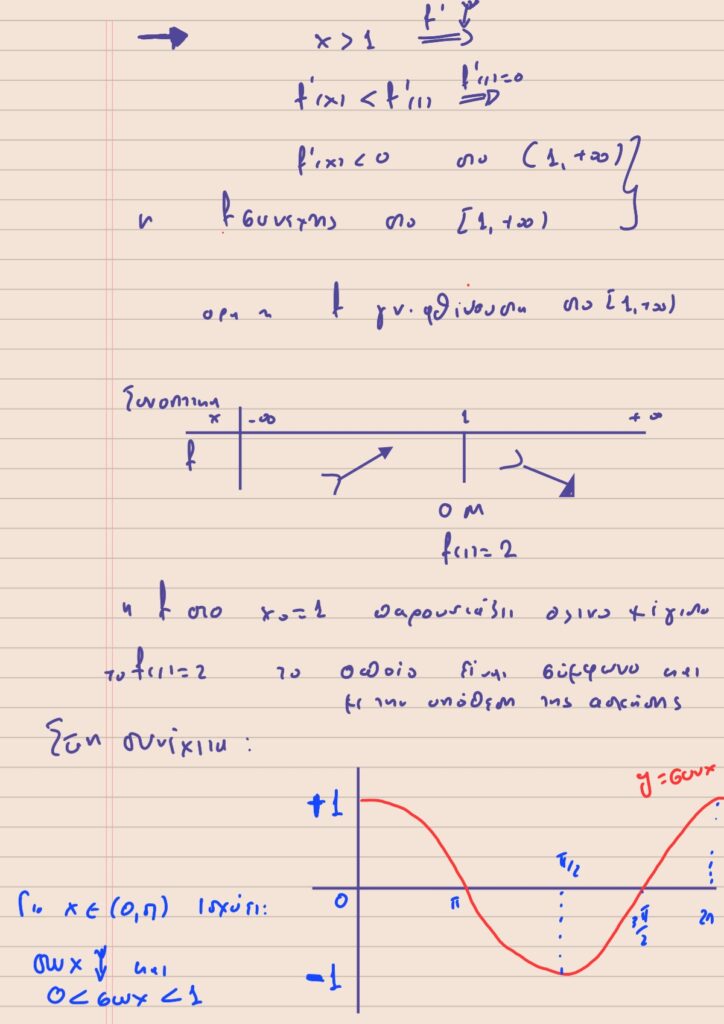 x > 1 f' ↓ ⟹
f'(x) < f'(1) f'(1)=0 ⟹
f'(x) < 0 στο (1, +∞)
η f συνεχης στο [1, +∞)
αρα η f γν. φθίνουσα στο [1, +∞)
Συνοπτικα
x -∞ 1 +∞
f
Ο Μ
f(1)= 2
η f στο x₀=1 παρουσιάζει ολικο μέγιστο
το f(1)=2 το οποίο είναι σύμφωνο και
με την υπόθεση της ασκησης
Στη συνέχεια :
y = συνx
+1
π/2
0 π 3π/2 2π
Για x ∈ (0,π) Ισχύει:
συνx ↓ και
-1
0 < συνx < 1